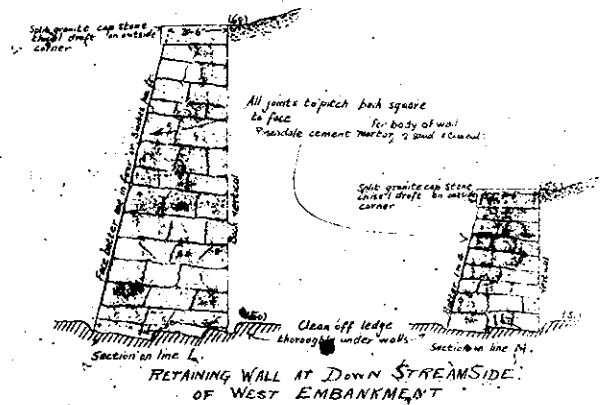 Split granite cap stone
chisel draft on outside
corner
(69)
2'-6"
All joints to pitch back square
to face
for body of wall
Rosendale cement mortar, 2 sand 1 cement
Back vertical
Split granite cap stone
chisel draft on outside
corner
vertical
Clean off ledge
thoroughly under walls
Section on line L
Section on line M.
RETAINING WALL AT DOWN STREAM SIDE
OF WEST EMBANKMENT